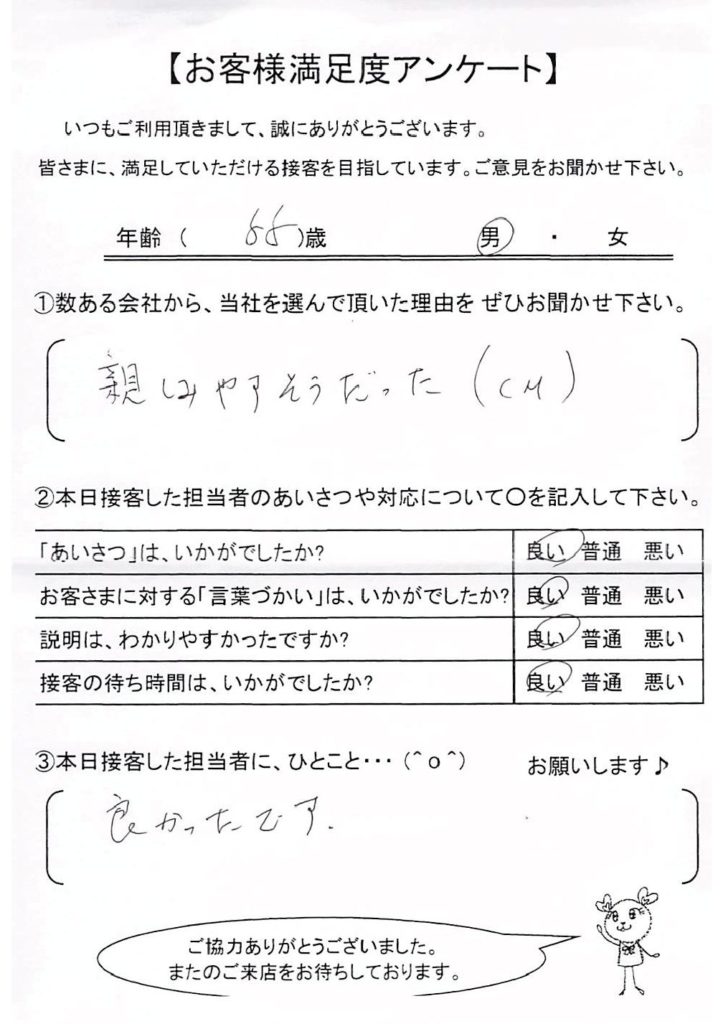 【お客様満足度アンケート】
いつもご利用頂きまして、誠にありがとうございます。
皆さまに、満足していただける接客を目指しています。ご意見をお聞かせ下さい。
年齢 ( )歳 男 ・ 女
①数ある会社から、当社を選んで頂いた理由を ぜひお聞かせ下さい。
親しみやすそうだった (CM)
②本日接客した担当者のあいさつや対応について〇を記入して下さい。
「あいさつ」は、いかがでしたか? 良い 普通 悪い
お客さまに対する「言葉づかい」は、いかがでしたか? 良い 普通 悪い
説明は、わかりやすかったですか? 良い 普通 悪い
接客の待ち時間は、いかがでしたか? 良い 普通 悪い
③本日接客した担当者に、ひとこと・・・ (^o^) お願いします♪
良かったです.
ご協力ありがとうございました。
またのご来店をお待ちしております。